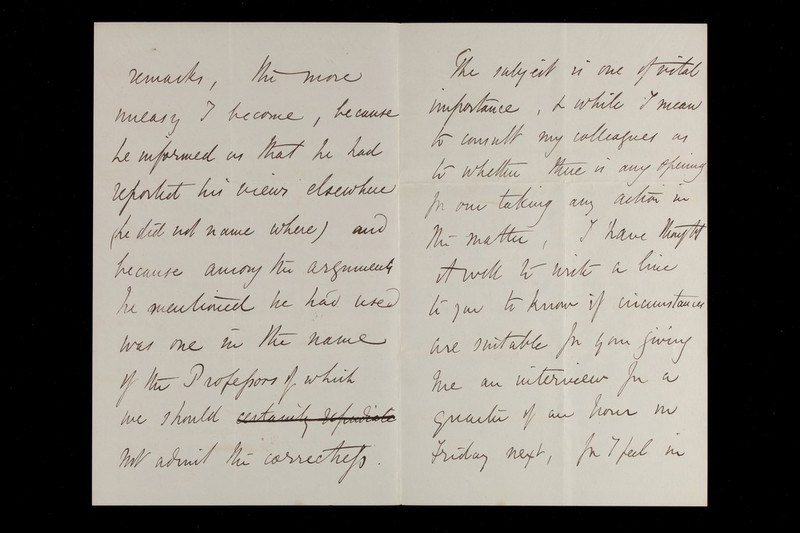 remarks, the more
uneasy I become, because
he informed us that he had
reported his views elsewhere
(he did not name where) and
because among the arguments
he mentioned he had used
was one in the name
of the Professors of which
we should certainly repudiate
not admit the correctness.
The subject is one of vital
importance, & while I mean
to consult my colleagues as
to whether there is any opening
for our taking any action in
the matter, I have thought
it well to write a line
to you to know if circumstances
are suitable for your giving
me an interview for a
quarter of an hour on
Friday next, for I feel in